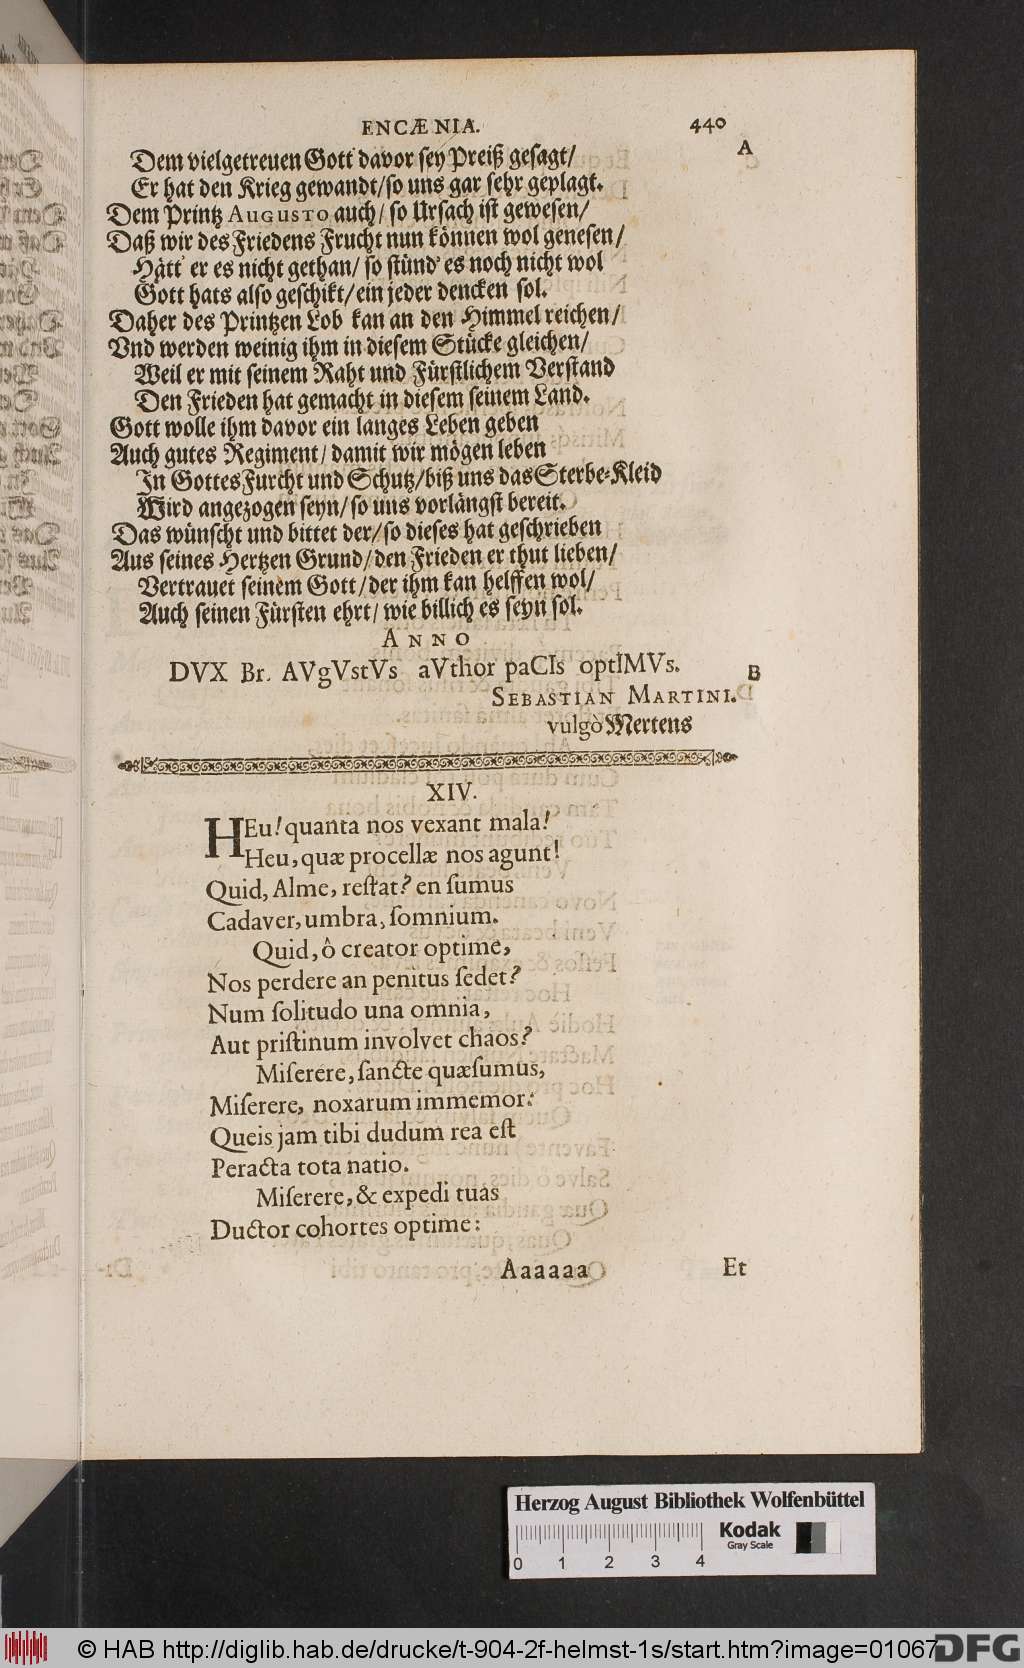 ENCÆNIA. 440
A
Dem vielgetreuen Gott davor sey Preiß gesagt/
Er hat den Krieg gewandt/so uns gar sehr geplagt.
Dem Printz AUGUSTO auch/ so Ursach ist gewesen/
Daß wir des Friedens Frucht nun können wol genesen/
Hätt' er es nicht gethan/ so stünd' es noch nicht wol
Gott hats also geschikt/ein jeder dencken sol.
Daher des Printzen Lob kan an den Himmel reichen/
Vnd werden weinig ihm in diesem Stücke gleichen/
Weil er mit seinem Raht und Fürstlichem Verstand
Den Frieden hat gemacht in diesem seinem Land.
Gott wolle ihm davor ein langes Leben geben
Auch gutes Regiment/ damit wir mögen leben
In Gottes Furcht und Schutz/biß uns das Sterbe-Kleid
Wird angezogen seyn/so uns vorlängst bereit.
Das wünscht und bittet der/so dieses hat geschrieben
Aus seines Hertzen Grund/den Frieden er thut lieben/
Vertrauet seinem Gott/der ihm kan helffen wol/
Auch seinen Fürsten ehrt/ wie billich es seyn sol.
ANNO
DVX Br. AVgVstVs aVthor paCIs optIMVs.
B
SEBASTIAN MARTINI.
vulgò Mertens
XIV.
HEu! quanta nos vexant mala!
Heu, quæ procellæ nos agunt!
Quid, Alme, reſtat? en ſumus
Cadaver, umbra, ſomnium.
Quid, ô creator optime,
Nos perdere an penitus ſedet?
Num ſolitudo una omnia,
Aut priſtinum involvet chaos?
Miſerere, ſancte quæſumus,
Miſerere, noxarum immemor:
Queis jam tibi dudum rea eſt
Peracta tota natio.
Miſerere, & expedi tuas
Ductor cohortes optime:
Aaaaaa Et
Herzog August Bibliothek Wolfenbüttel
Kodak
Gray Scale
0 1 2 3 4
© HAB http://diglib.hab.de/drucke/t-904-2f-helmst-1s/start.htm?image=01067
DFG